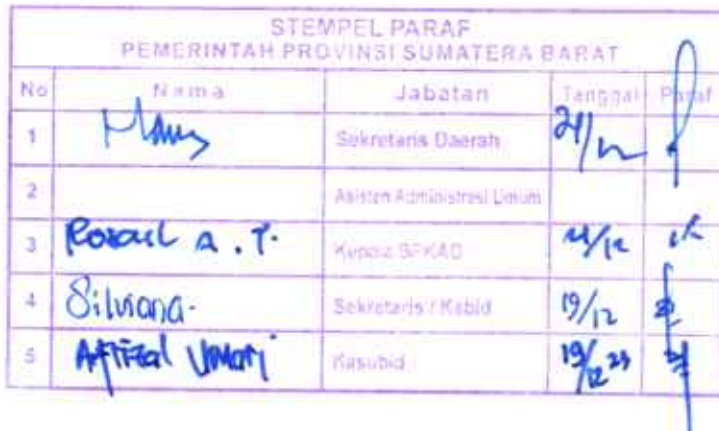 STEMPEL PARAF
PEMERINTAH PROVINSI SUMATERA BARAT
No Nama Jabatan Tanggal Paraf
1 Sekretaris Daerah
2 Asisten Administrasi Umum
3 A. T. Kepala BPKAD /12
4 Silviana. Sekretaris / Kabid 19/12
5 Kasubid 19/12 23